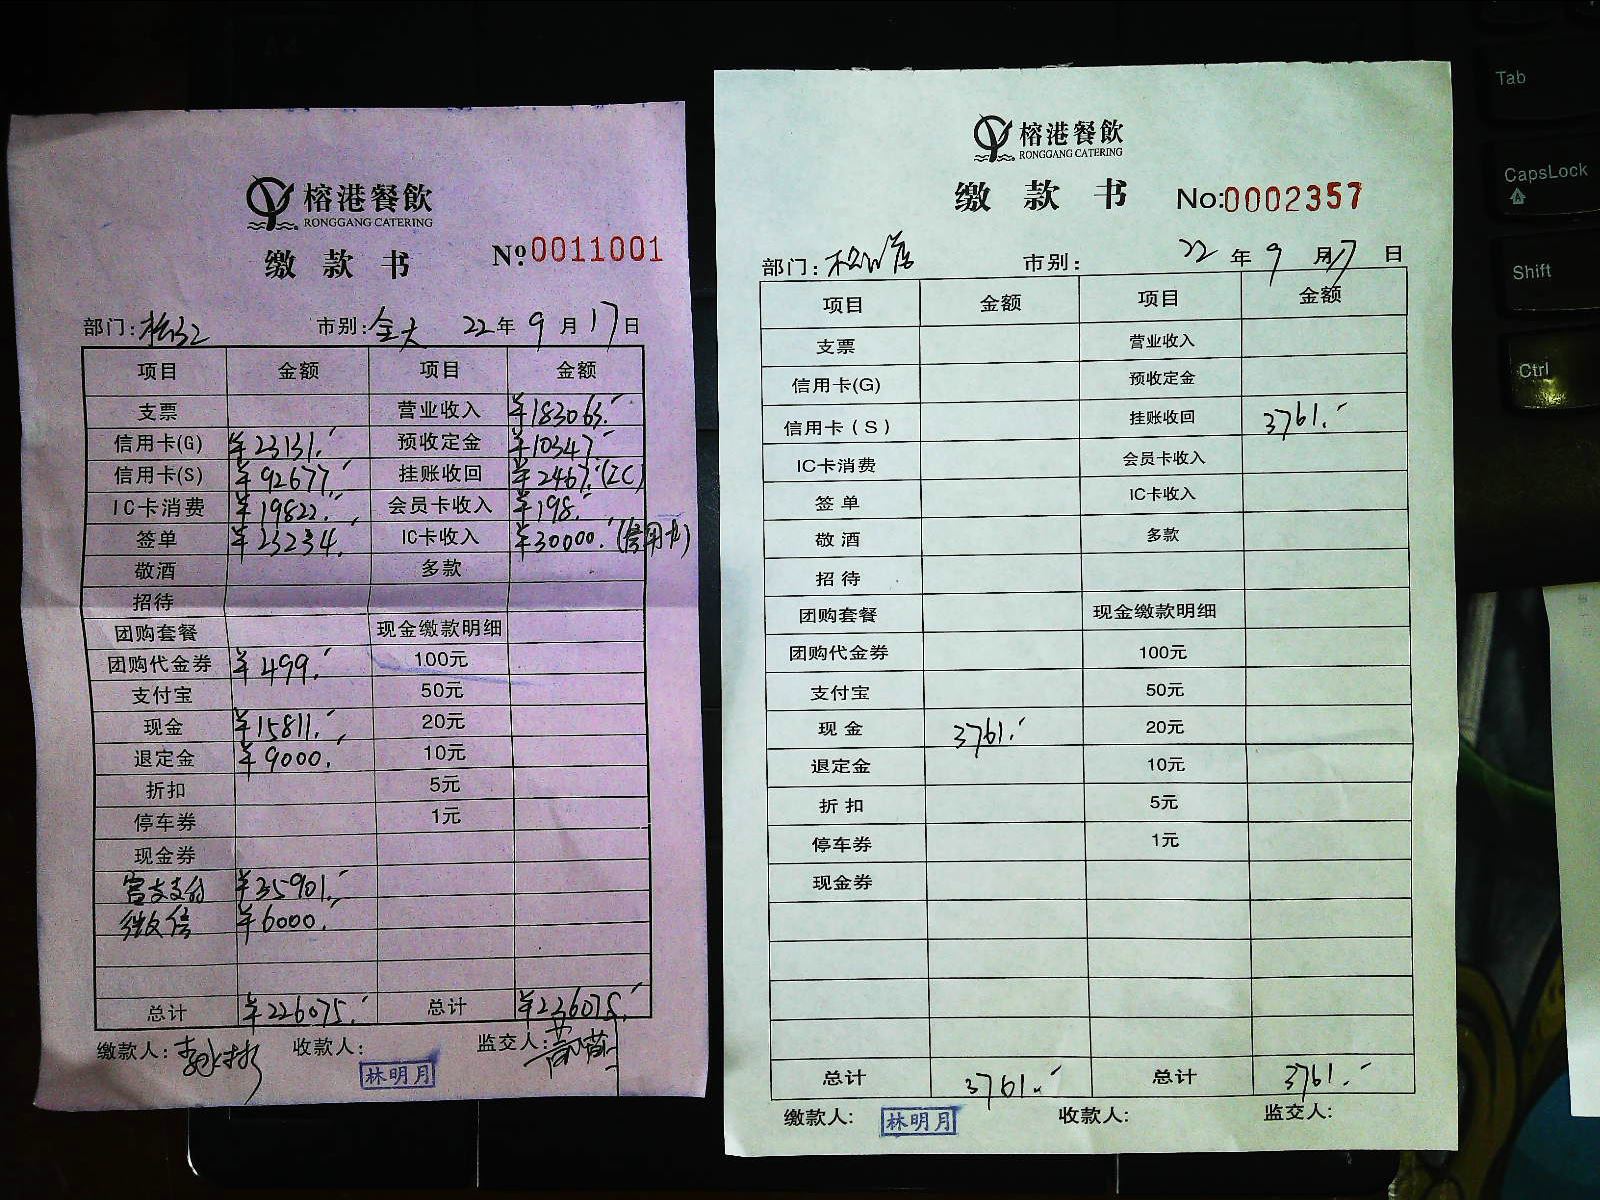 榕港餐飲
RONGGANG CATERING
缴款书
Nº.0011001
部门:松江 市别:全天 22年9月17日
项目 金额 项目 金额
支票 营业收入 ¥183063.-
信用卡(G) ¥23131.- 预收定金 ¥10347.-
信用卡(S) ¥92677.- 挂账收回 ¥2467.-(IC)
IC卡消费 ¥19822.- 会员卡收入 ¥198.-
签单 ¥23234.- IC卡收入 ¥30000.-(信用卡)
敬酒 多款
招待
团购套餐 现金缴款明细
团购代金券 ¥499.- 100元
支付宝 50元
现金 ¥15811.- 20元
退定金 ¥9000.- 10元
折扣 5元
停车券 1元
现金券
富友支付 ¥35901.-
微信 ¥6000.-
总计 ¥226075.- 总计 ¥226075.-
缴款人: 收款人: 林明月 监交人:
榕港餐飲
RONGGANG CATERING
缴款书 No:0002357
部门:松江店 市别: 22年9月17日
项目 金额 项目 金额
支票 营业收入
信用卡(G) 预收定金
信用卡(S) 挂账收回 3761.-
IC卡消费 会员卡收入
签单 IC卡收入
敬酒 多款
招待
团购套餐 现金缴款明细
团购代金券 100元
支付宝 50元
现金 3761.- 20元
退定金 10元
折扣 5元
停车券 1元
现金券
总计 3761.- 总计 3761.-
缴款人: 林明月 收款人: 监交人:
Tab
CapsLock
Shift
Ctrl